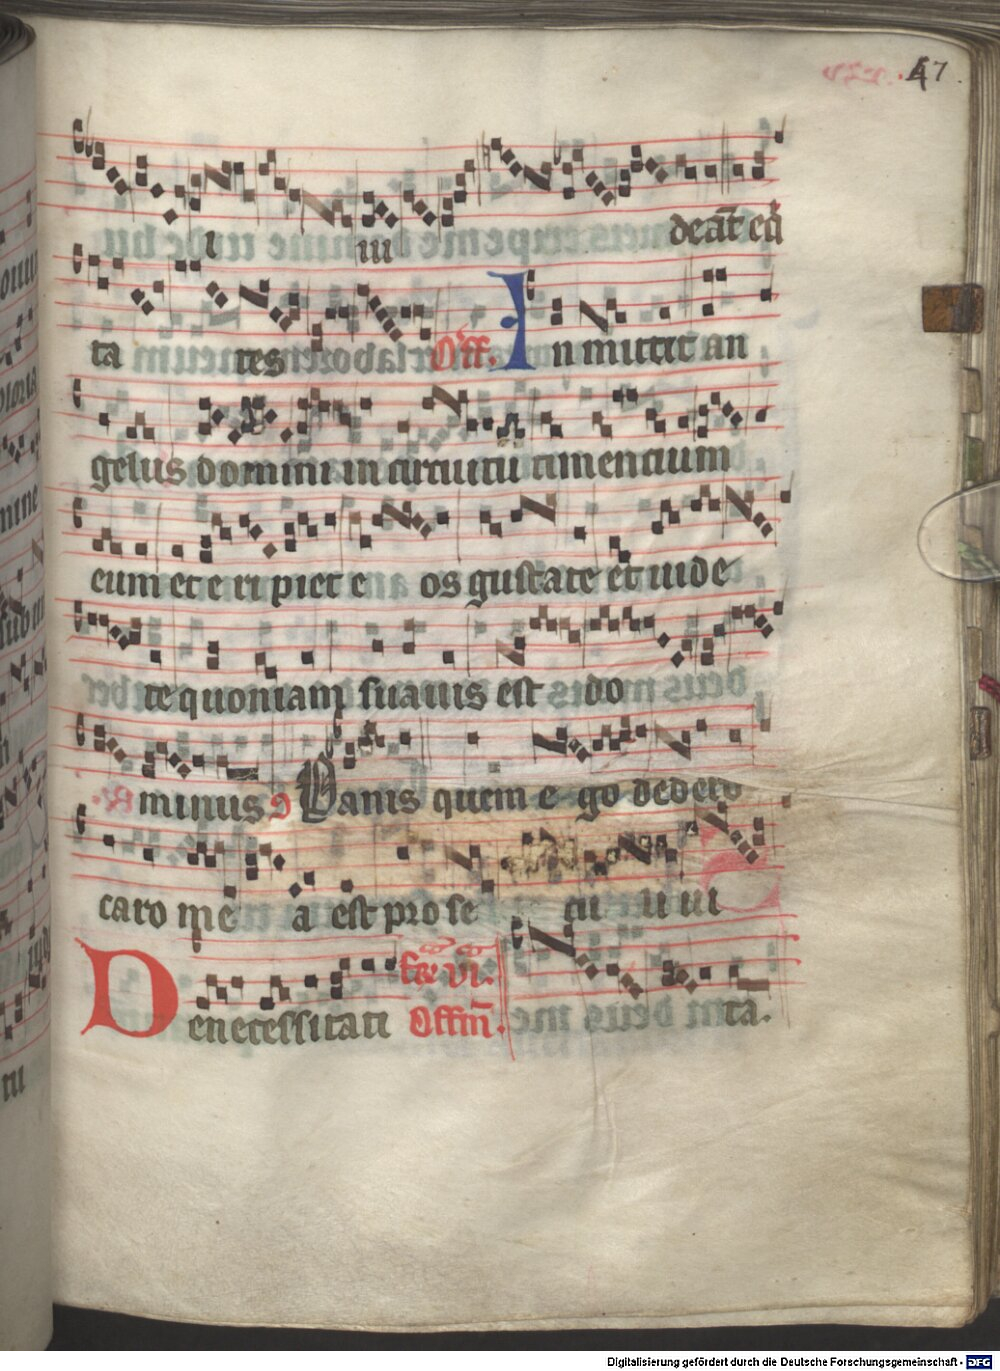 47
i iu deat̄ eq̄
ta tes Off. Inmittit an
gelus domini in circuitu timentium
eum et e ri piet e os gustate et uide
te quoniam suauis est do
minus Panis quem e go dedero
caro me a est pro se cu li ui
Denecessitati fr̄e vi. Offm̄. ta.
Digitalisierung gefördert durch die Deutsche Forschungsgemeinschaft - DFG